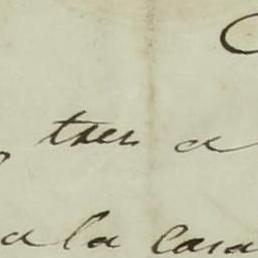 tres a
a la casa